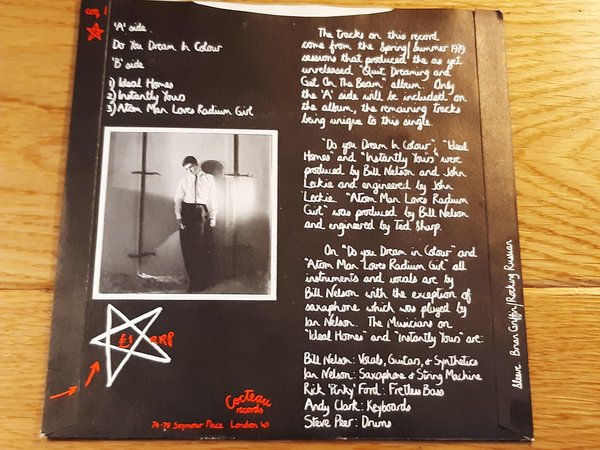 COQ 1
'A' side.
Do You Dream In Colour
'B' side
1) Ideal Homes
2) Instantly Yours
3) Atom Man Loves Radium Girl
£1 RRP
Cocteau
records
74-78 Seymour Place London W1
The tracks on this record
come from the Spring/Summer 1979
sessions that produced the as yet
unreleased "Quit Dreaming and
Get On The Beam" album. Only
the 'A' side will be included on
the album, the remaining tracks
being unique to this single.
"Do you Dream In Colour", "Ideal
Homes" and "Instantly Yours" were
produced by Bill Nelson and John
Leckie and engineered by John
Leckie. "Atom Man Loves Radium
Girl" was produced by Bill Nelson
and engineered by Ted Sharp.
On "Do you Dream in Colour" and
"Atom Man Loves Radium Girl" all
instruments and vocals are by
Bill Nelson with the exception of
saxaphone which was played by
Ian Nelson. The Musicians on
"Ideal Homes" and "Instantly Yours" are:
Bill Nelson: Vocals, Guitars, & Synthetics
Ian Nelson: Saxaphone & String Machine
Rick 'Pinky' Ford: Fretless Bass
Andy Clark: Keyboards
Steve Peer: Drums
Sleeve Brian Griffin/Rocking Russian